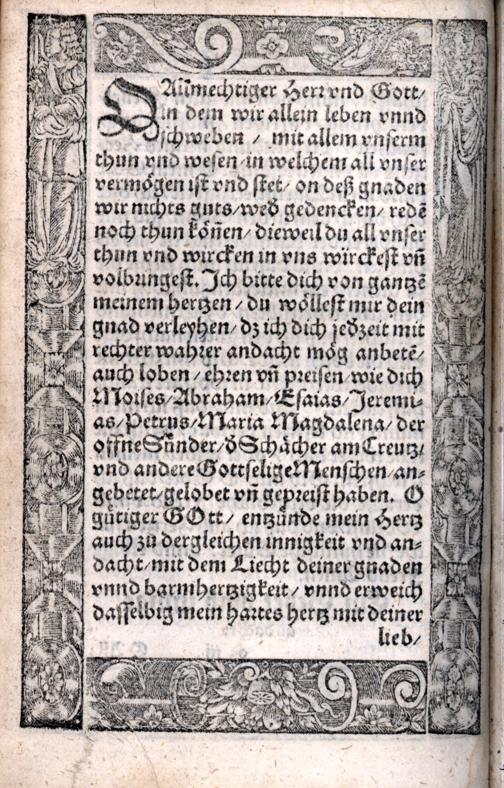 OAllmechtiger Herr vnd Gott/
in dem wir allein leben vnnd
schweben / mit allem vnserm
thun vnd wesen/ in welchem all vnser
vermögen ist vnd stet/ on deß gnaden
wir nichts guts/ wed̕ gedencken/ redē
noch thun köñen/ dieweil du all vnser
thun vnd wircken in vns wirckest vñ
volbringest. Ich bitte dich von gantzē
meinem hertzen/ du wöllest mir dein
gnad verleyhen/ dz ich dich jed̕zeit mit
rechter wahrer andacht mög anbetē/
auch loben/ ehren vñ preisen/ wie dich
Moises/ Abraham/ Esaias/ Jeremi-
as/ Petrus/ Maria Magdalena/ der
offne Sünder/ d̕ Schächer am Creutz/
vnd andere Gottselige Menschen/ an-
gebetet/ gelobet vñ gepreist haben. O
gütiger GOtt/ entzünde mein Hertz
auch zu dergleichen innigkeit vnd an-
dacht/ mit dem Liecht deiner gnaden
vnnd barmhertzigkeit/ vnnd erweich
dasselbig mein hartes hertz mit deiner
lieb/